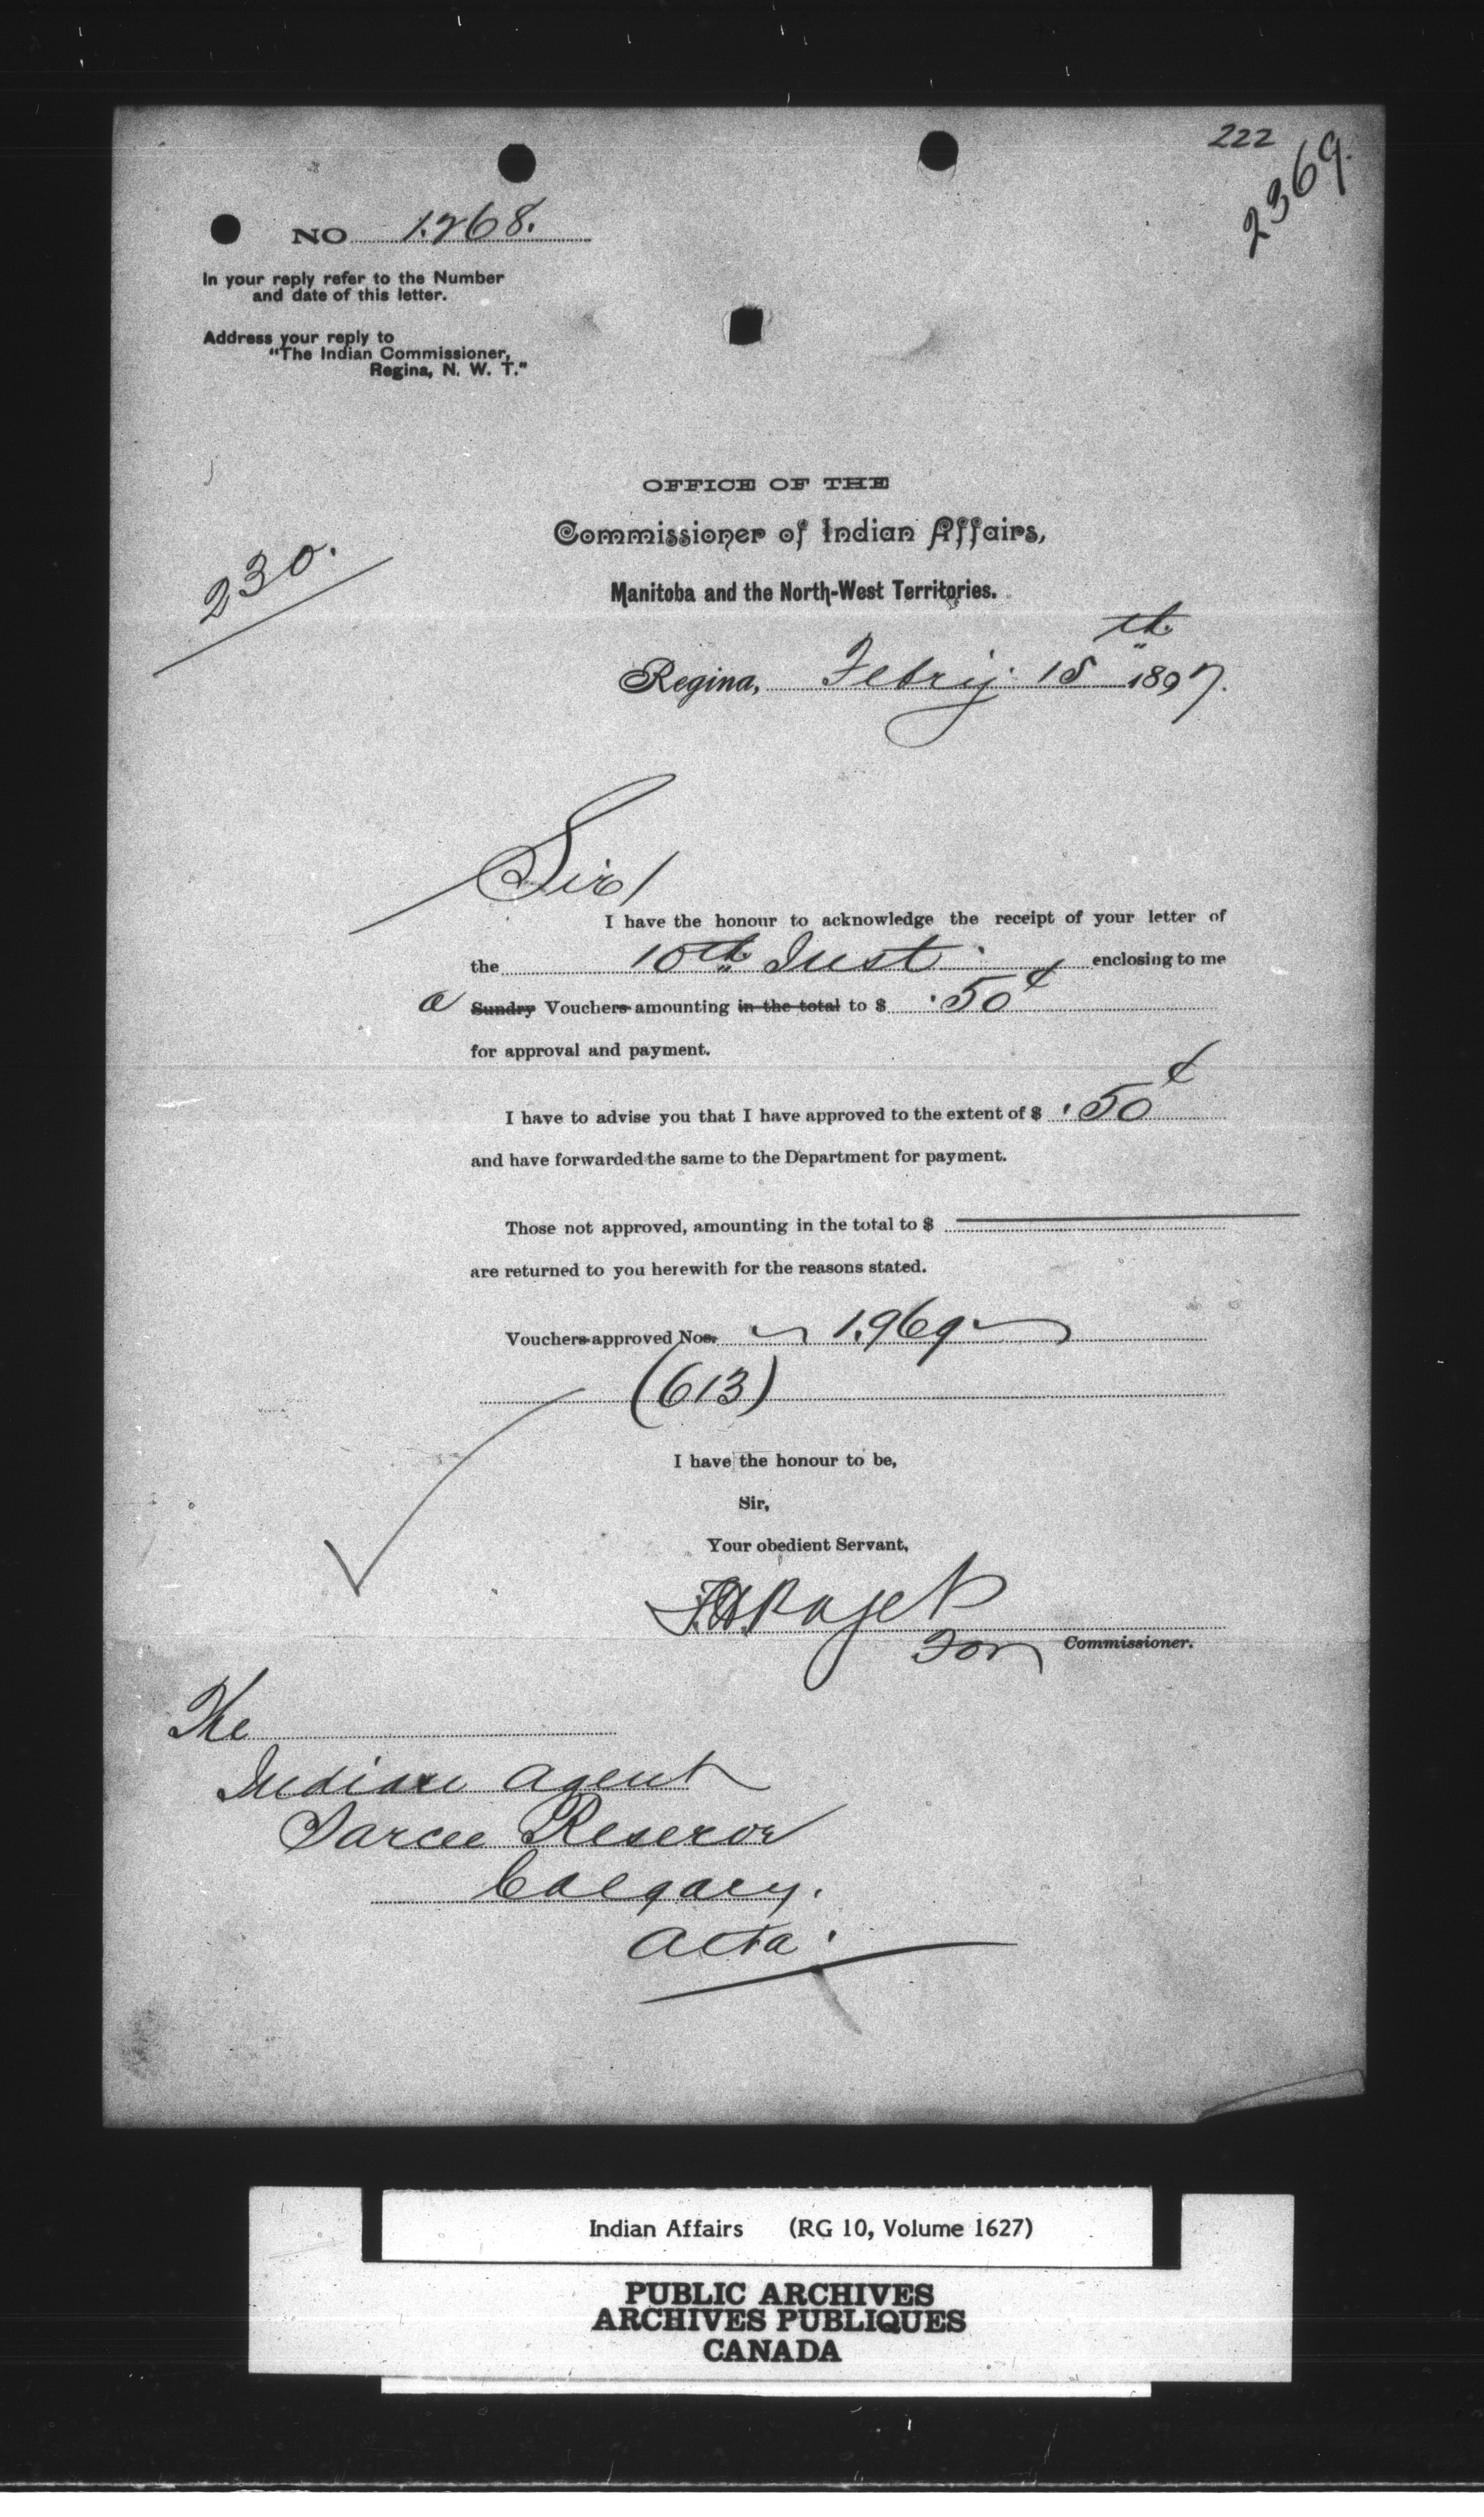 222
2369.
NO 1.268.
In your reply refer to the Number
and date of this letter.
Address your reply to
"The Indian Commissioner,
Regina, N. W. T."
OFFICE OF THE
Commissioner of Indian Affairs,
Manitoba and the North-West Territories.
230.
Regina, Febry 15th 1897.
Sir/
I have the honour to acknowledge the receipt of your letter of
the 10th Inst. enclosing to me
a Sundry Vouchers amounting in the total to $ .50¢
for approval and payment.
I have to advise you that I have approved to the extent of $ .50¢
and have forwarded the same to the Department for payment.
Those not approved, amounting in the total to $
are returned to you herewith for the reasons stated.
Vouchers approved Nos. 1.969
(613)
I have the honour to be,
Sir,
Your obedient Servant,
Paget
For Commissioner.
The
Indian Agent
Sarcee Reserve
Calgary.
Alta.
Indian Affairs (RG 10, Volume 1627)
PUBLIC ARCHIVES
ARCHIVES PUBLIQUES
CANADA